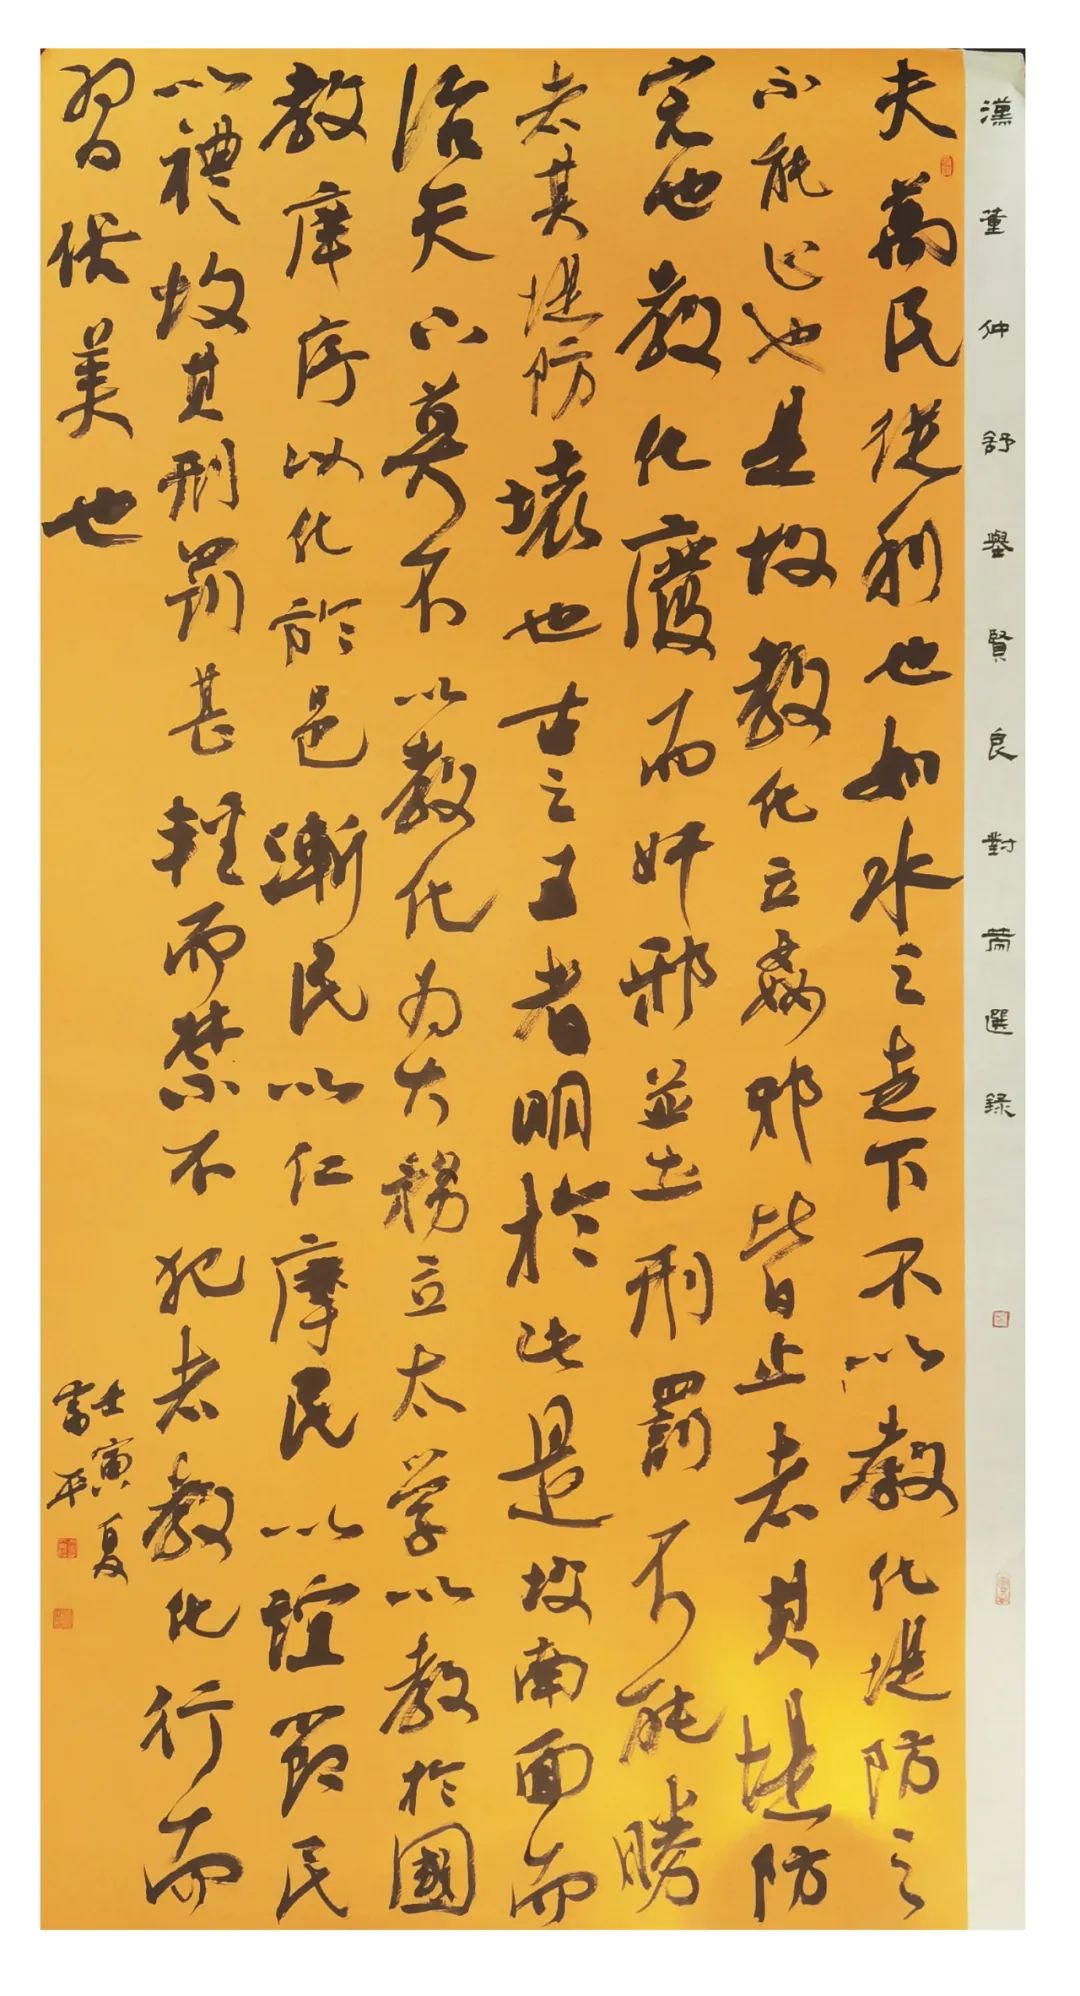 漢董仲舒舉賢良對策選錄
夫萬民從利也如水之走下不以教化堤防之
不能止也是故教化立姦邪皆止者其堤防
完也教化廢而奸邪並出刑罰不能勝
者其堤防壞也古之王者明於此是故南面而
治天下莫不以教化为大務立太学以教於國
教庠序以化於邑漸民以仁摩民以誼節民
以禮故其刑罰甚輕而禁不犯者教化行而
習俗美也
壬寅夏
平